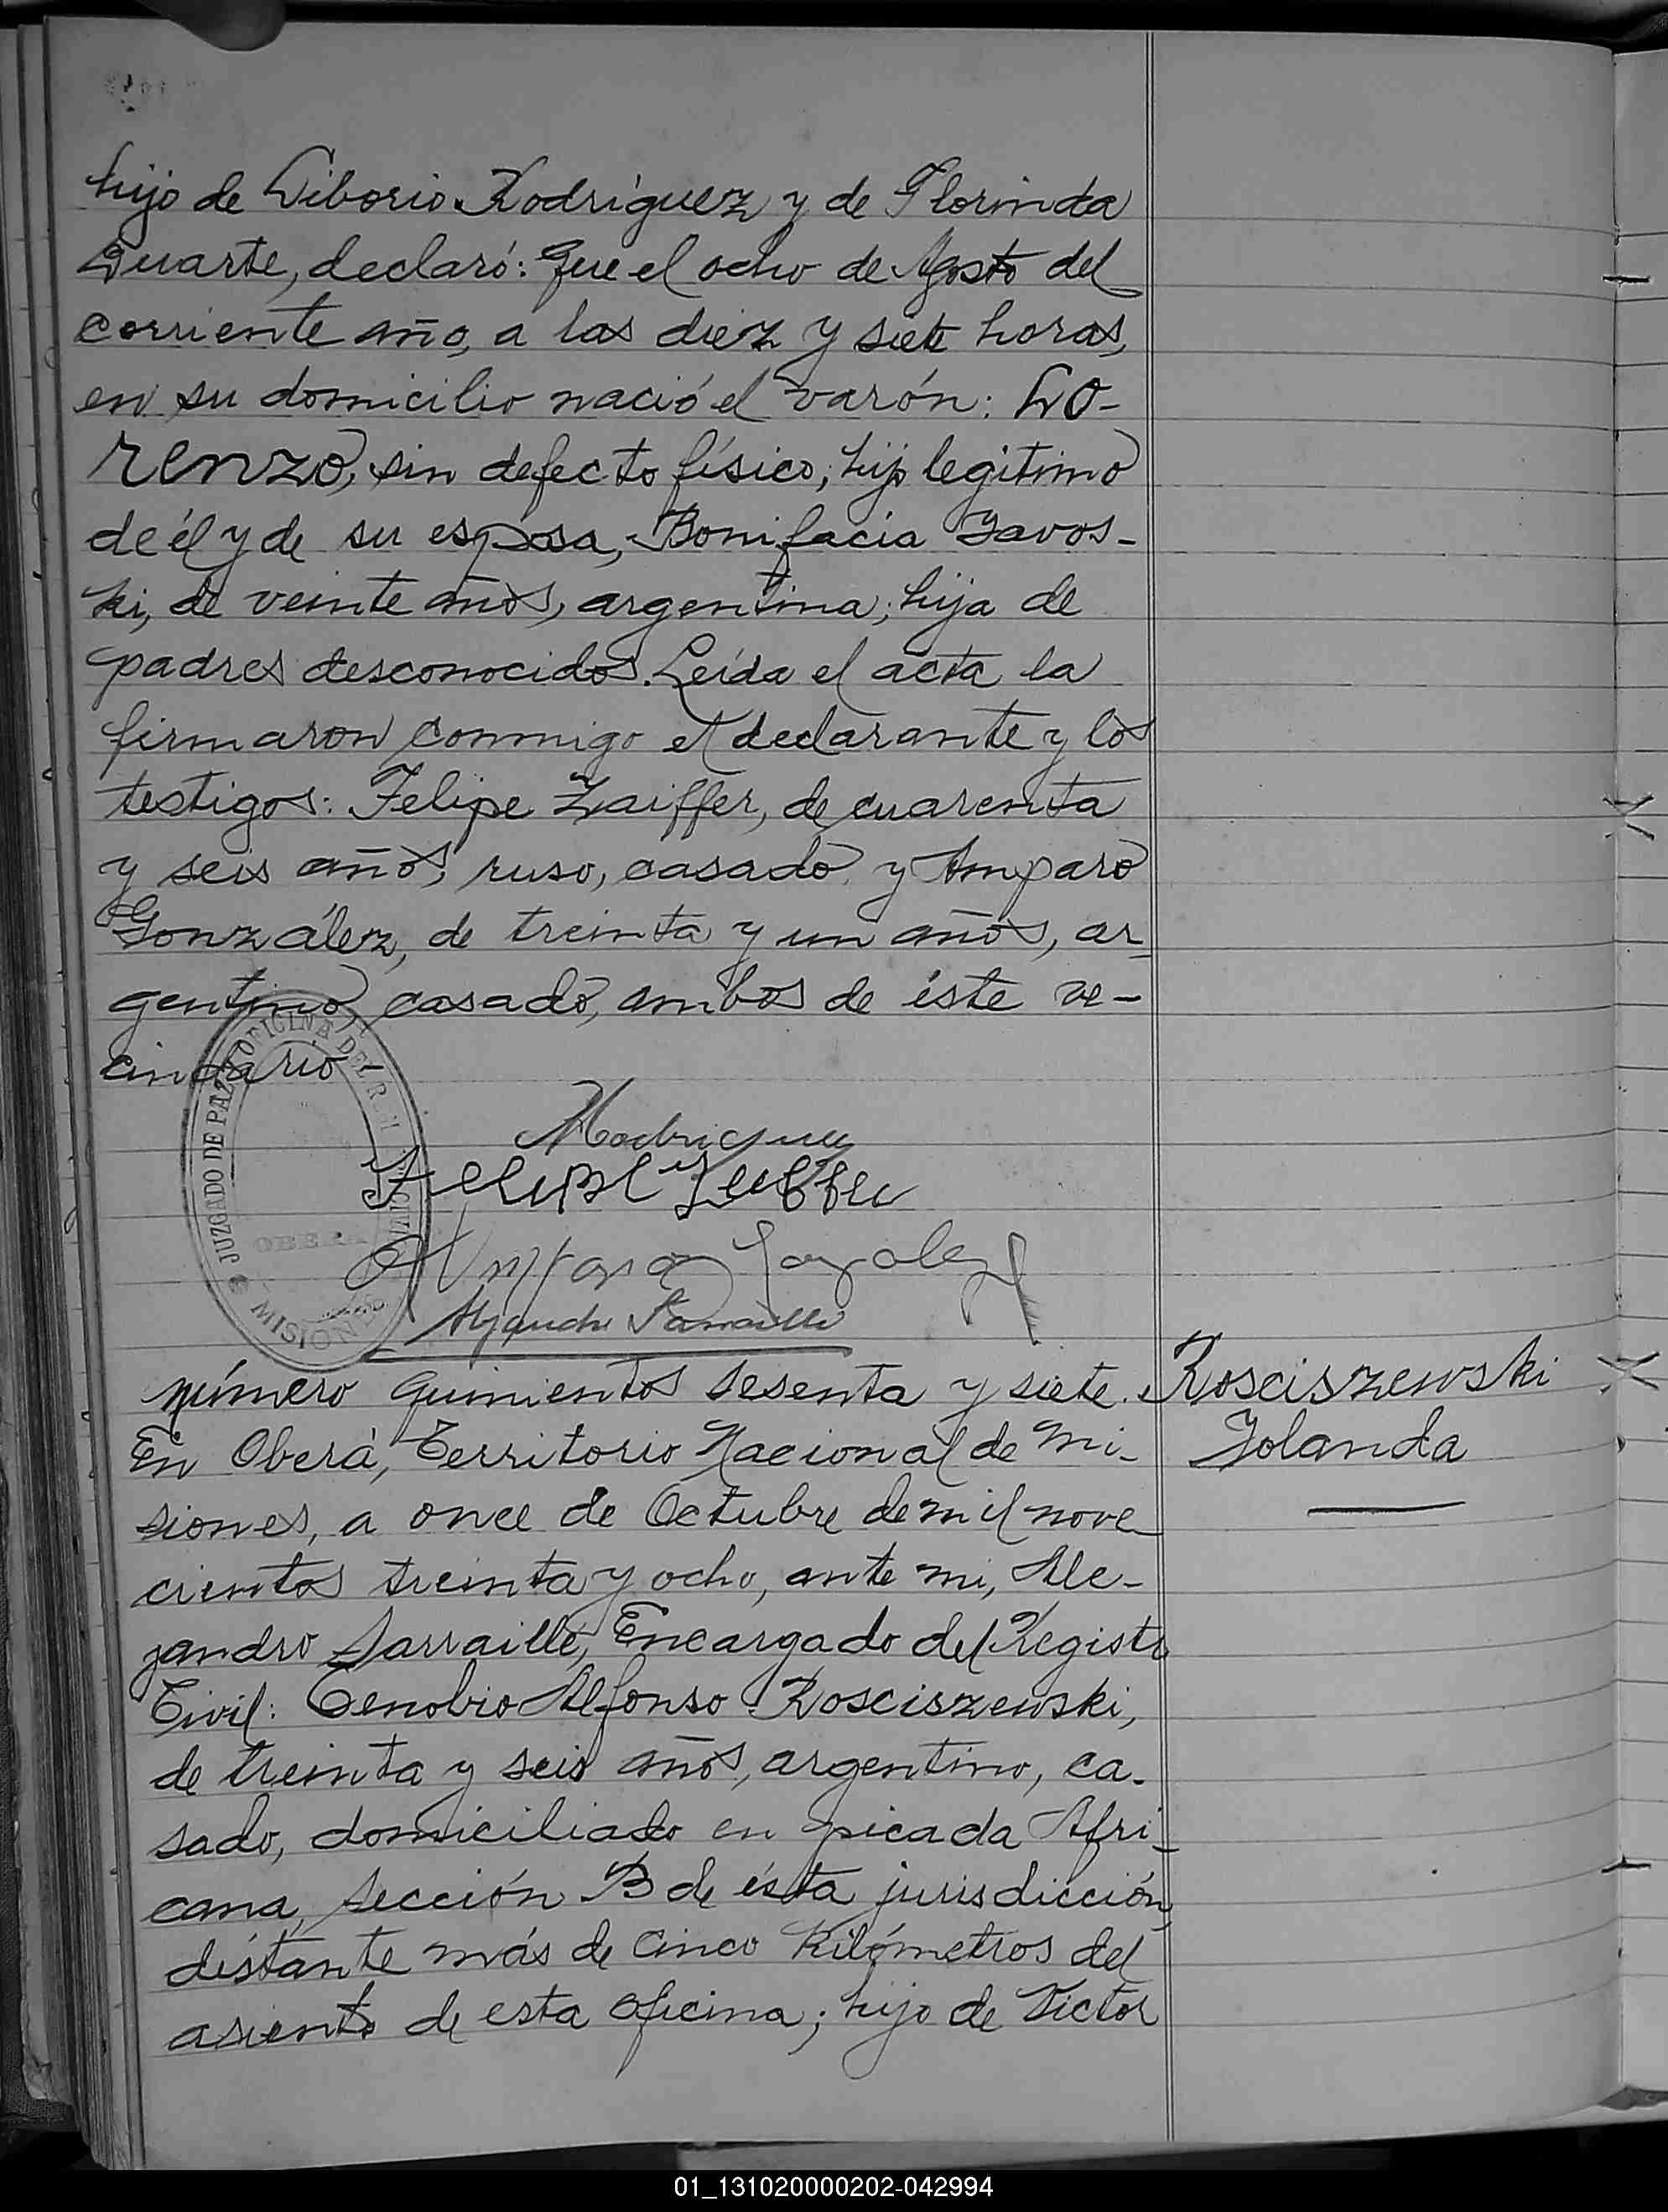 hijo de Liborio Rodríguez y de Florinda
Duarte, declaró: Que el ocho de Agosto del
corriente año, a las diez y siete horas,
en su domicilio nació el varón: Lo-
renzo, sin defecto físico; hijo legítimo
de él y de su esposa, Bonifacia Yavos-
ki, de veinte años, argentina; hija de
padres desconocidos. Leída el acta la
firmaron conmigo el declarante y los
testigos: Felipe Zaiffer, de cuarenta
y seis años, ruso, casado y Amparo
González, de treinta y un años, ar-
gentino, casado, ambos de éste ve-
cindario-
JUZGADO DE PAZ OFICINA DEL R.
OBERA
MISIONES
Amparo Gonzalez
Alejandro Sarraillé
Número quinientos sesenta y siete.
Rosciszewski
Yolanda
En Oberá, Territorio Nacional de Mi-
siones, a once de Octubre de mil nove-
cientos treinta y ocho, ante mi, Ale-
jandro Sarraillé, Encargado del Registro
Civil: Cenobio Alfonso Rosciszewski,
de treinta y seis años, argentino, ca-
sado, domiciliado en picada Afri-
cana, sección B de ésta jurisdicción,
distante más de cinco Kilómetros del
asiento de esta oficina; hijo de Victor
01_131020000202-042994